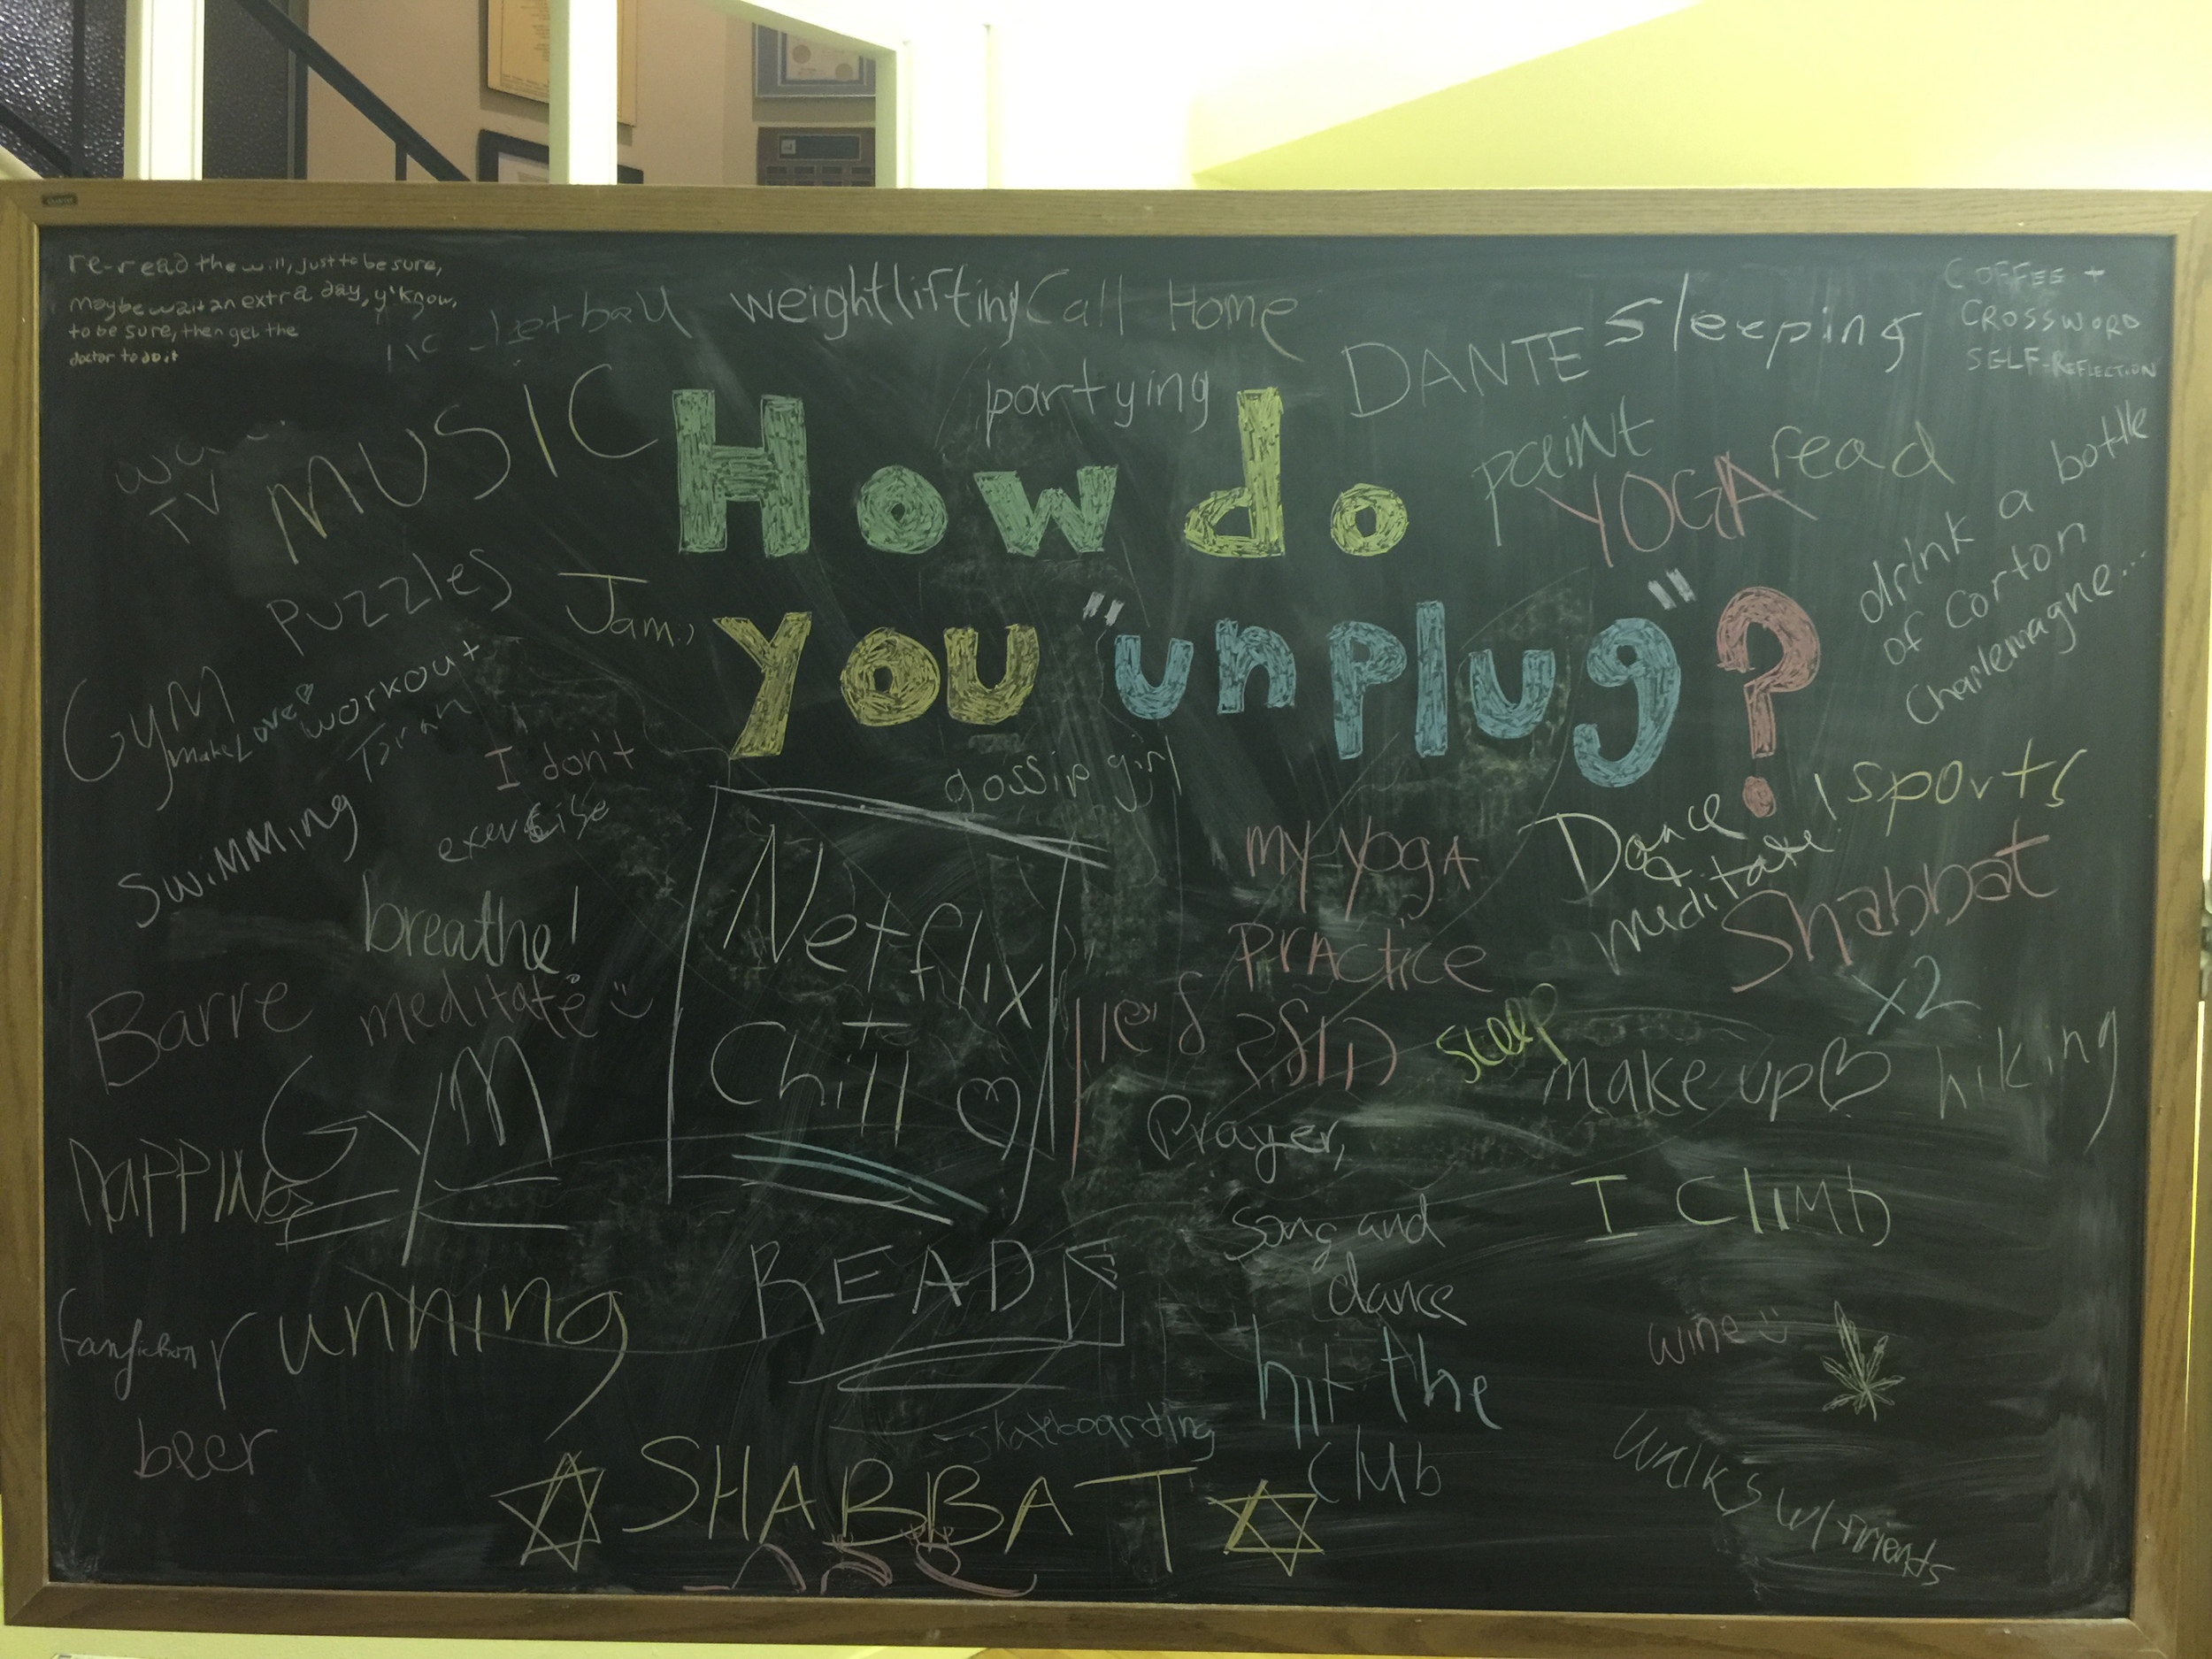 re-read the will, just to be sure,
maybe wait an extra day, y'know,
to be sure, then get the
doctor to do it
weightlifting
Call Home
partying
DANTE
sleeping
COFFEE +
CROSSWORD
SELF-REFLECTION
TV
MUSIC
How do
you "unplug"?
paint
YOGA
read
drink a bottle
of Corton
Charlemagne...
Puzzles
Jam
GyM
Make Love
workout
I don't
exercise
gossip girl
swiMMing
breathe!
meditate
Barre
Netflix
Chill
my yogA
PrActice
Dance
meditate!
sports
Shabbat
x2
sleep
make up
hiking
Prayer,
Song and
dance
GyM
NaPPING
I CLIMb
READ
running
fanfiction
beer
hit the
Club
wine
skateboarding
SHABBAT
walks w/ friends